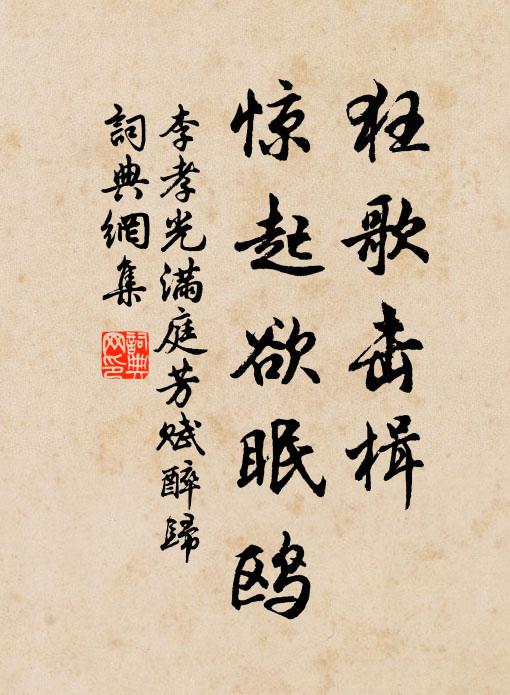 狂歌击楫
惊起欲眠鸥
李孝光满庭芳赋醉歸
詞典網集
詞典網印